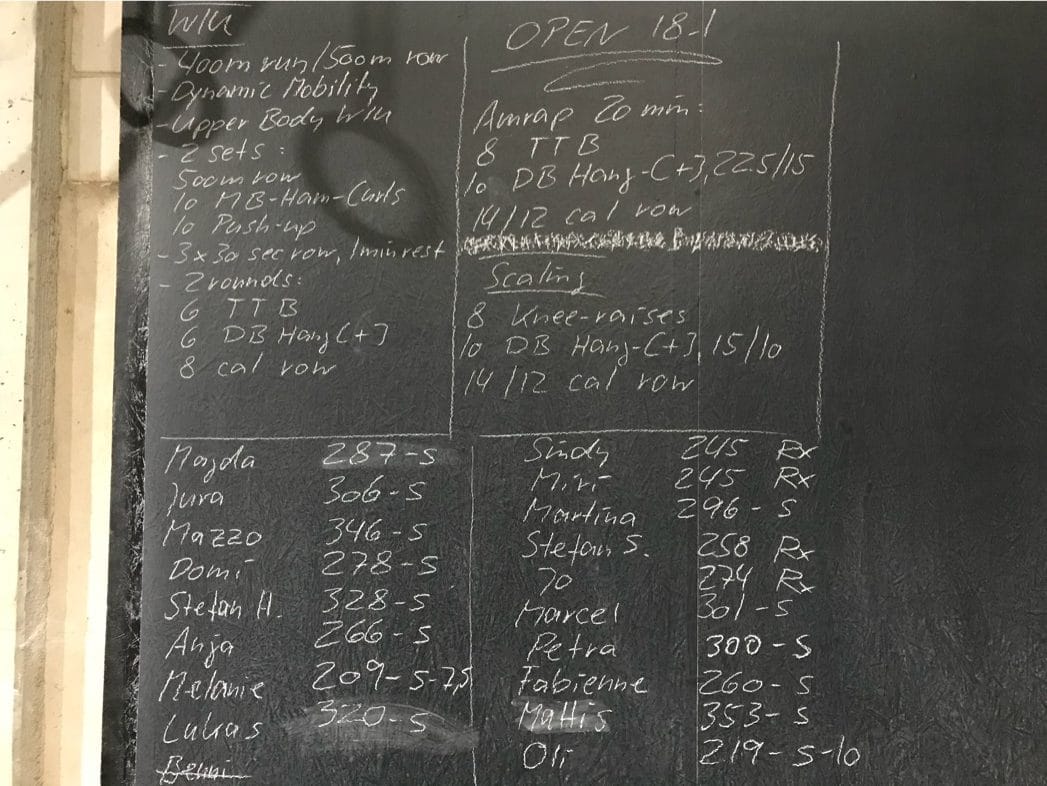 W/U
- 400m run/500m row
- Dynamic Mobility
- Upper Body W/U
- 2 sets:
500m row
10 MB-Ham-Curls
10 Push-up
- 3x30 sec row, 1min rest
- 2 rounds:
6 TTB
6 DB Hang C+J
8 cal row
OPEN 18.1
Amrap 20 min:
8 TTB
10 DB Hang-C+J, 22.5/15
14/12 cal row
Scaling
8 Knee-raises
10 DB Hang-C+J, 15/10
14/12 cal row
Majda 287-S
Jura 306-S
Mazzo 346-S
Domi 278-S
Stefan H. 328-S
Anja 266-S
Melanie 209-S-7,5
Lukas 320-S
Benni
Sindy 245 Rx
Miri 245 Rx
Martina 296-S
Stefan S. 258 Rx
Jo 274 Rx
Marcel 301-S
Petra 300-S
Fabienne 260-S
Mattis 353-S
Oli 219-S-10